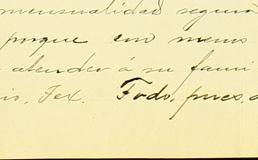 mensualidad segun
porque con menos
atender á su fami
io, Tex. Todo, pues,